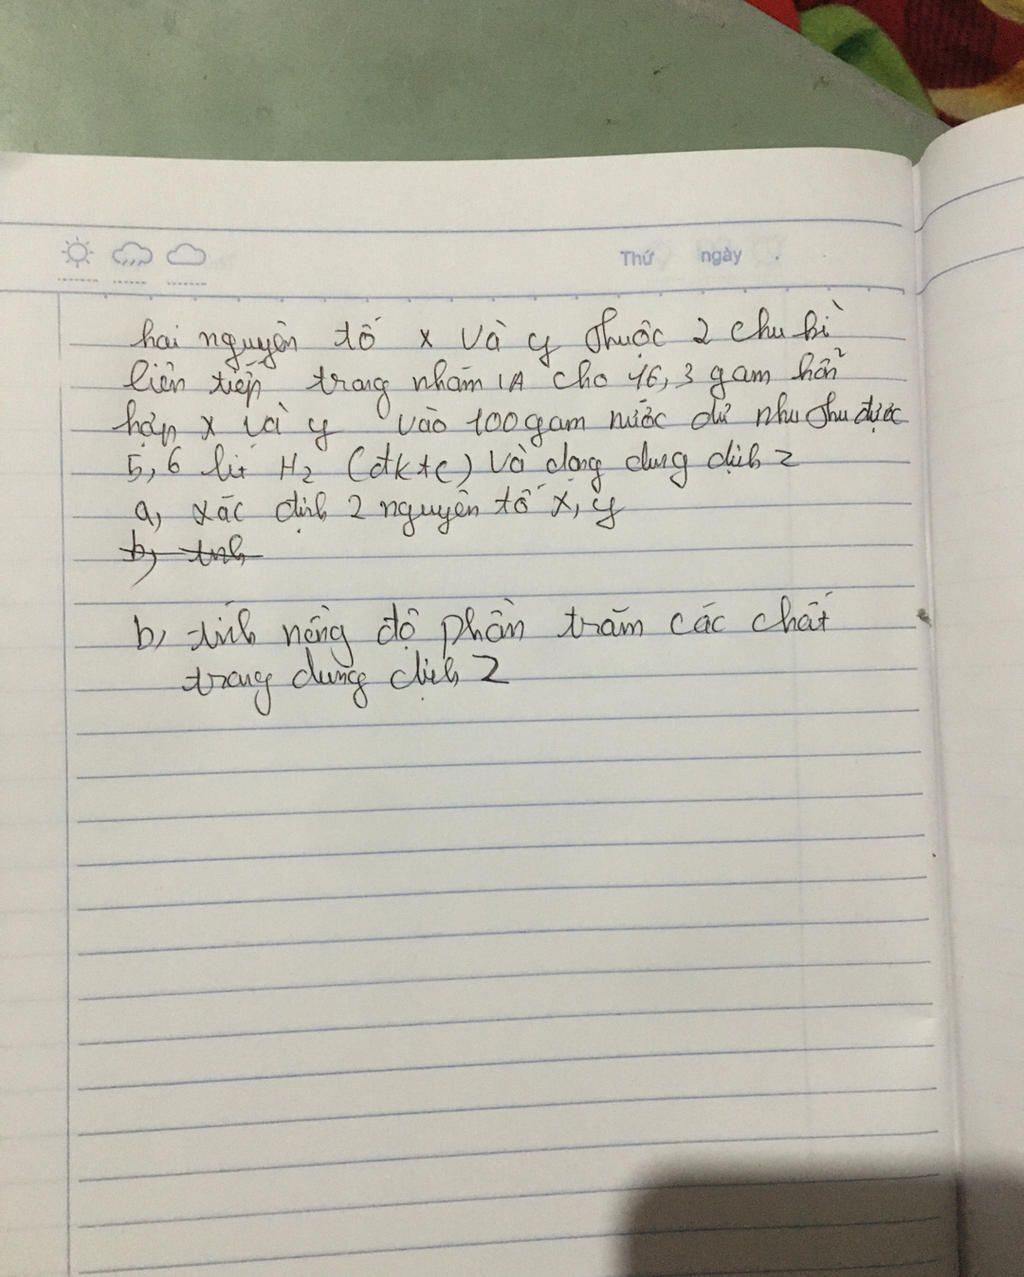 Thứ ngày
hai nguyên tố x và y thuộc 2 chu kì
liên tiếp trong nhóm IA cho 16,3 gam hỗn
hợp x và y vào 100gam nước dư như thu được
5,6 lít H2 (đktc) và dong dung dịch z
a, xác định 2 nguyên tố x, y
b, tính
b, tính nồng độ phần trăm các chất
trong dung dịch z